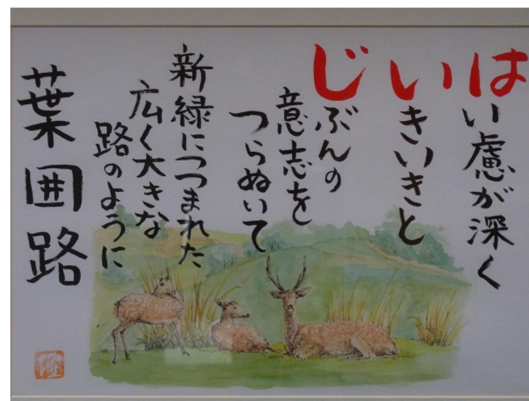 はい慮が深く
いきいきと
じぶんの
意志を
つらぬいて
新緑につつまれた
広く大きな
路のように
葉囲路